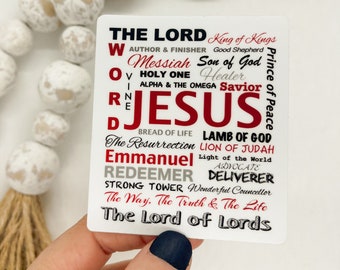 THE LORD King of Kings
AUTHOR & FINISHER Good Shepherd
WORD
Messiah Son of God
Prince of Peace
VINE
HOLY ONE Healer
ALPHA & THE OMEGA Savior
JESUS
BREAD OF LIFE LAMB OF GOD
The Resurrection LION OF JUDAH
Emmanuel Light of the World
ADVOCATE
REDEEMER DELIVERER
STRONG TOWER Wonderful Councellor
The Way, The Truth & The Life
The Lord of Lords